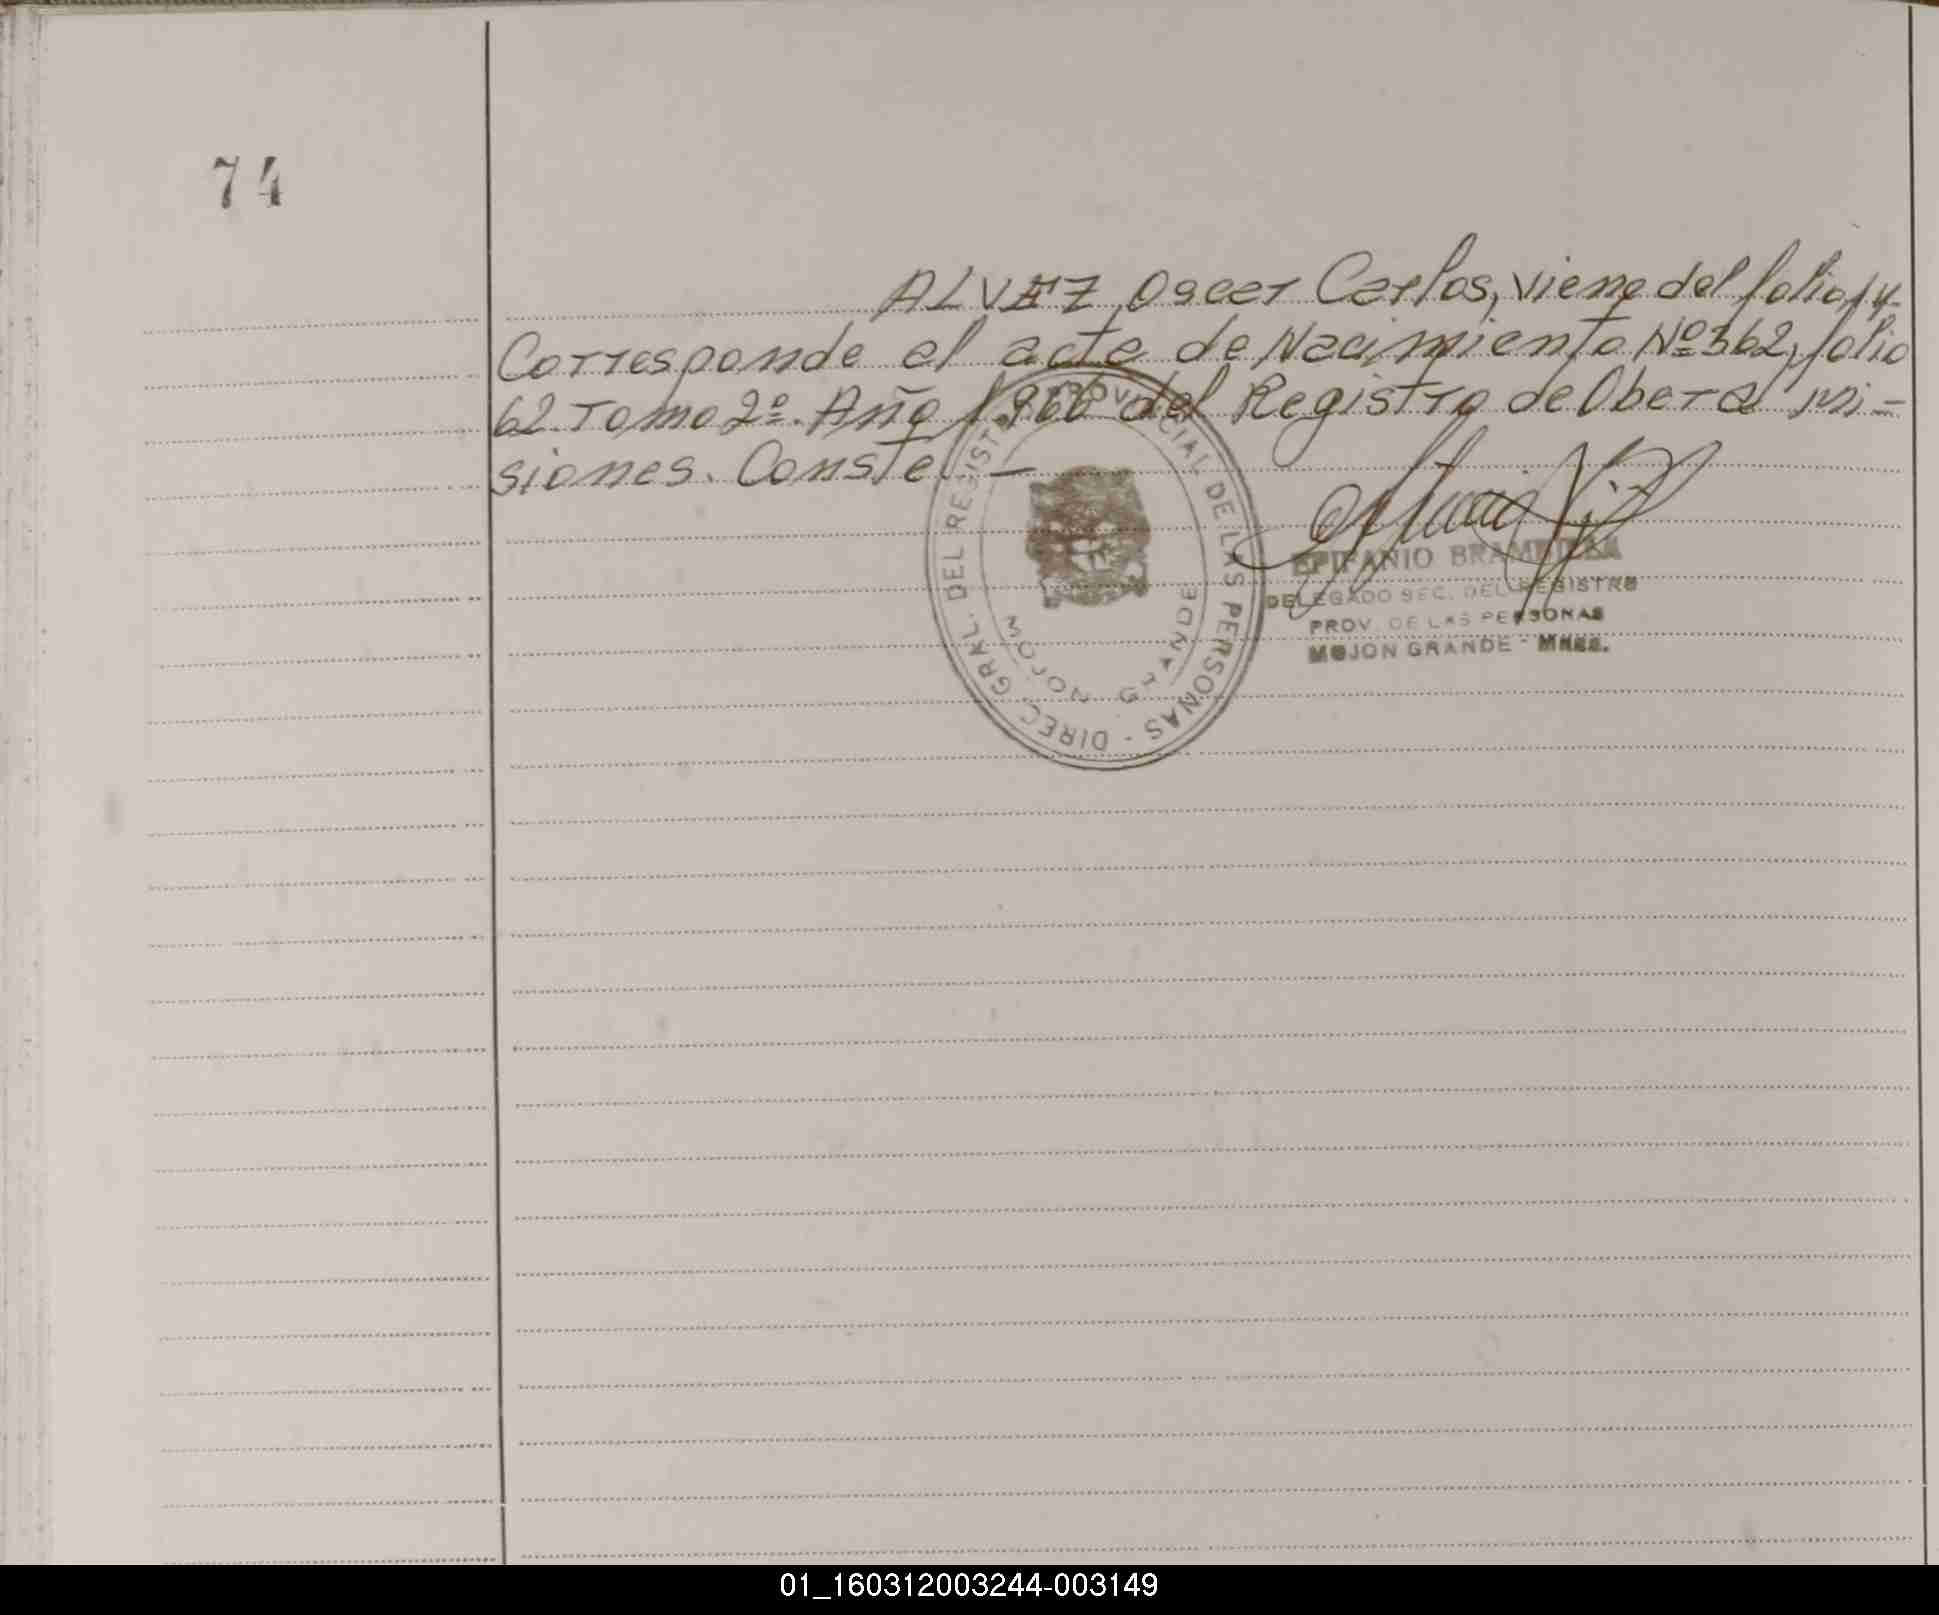 74
ALVEZ, Oscar Carlos, viene del folio, y
Corresponde al acta de Nacimiento Nº 362, folio
62. Tomo 2º. Año 1966 del Registro de Obera Mi-
siones. Conste. —
DIREC. GRAL. DEL REGISTRO PROVINCIAL DE LAS PERSONAS -
MOJON GRANDE
EPIFANIO BRAMBILLA
DELEGADO SEC. DEL REGISTRO
PROV. DE LAS PERSONAS
MOJON GRANDE - Mnes.
01_160312003244-003149